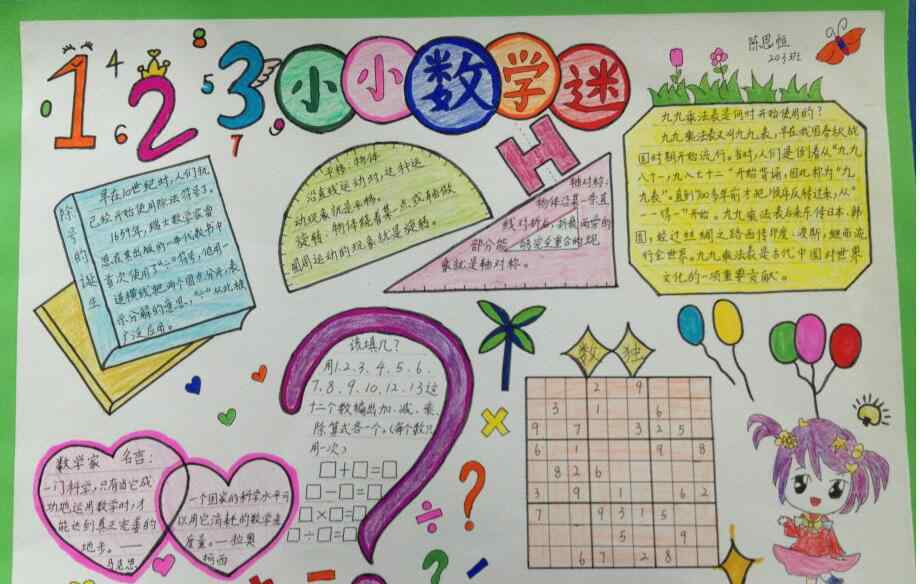 1 2 3
4
5
6
7
8
9
0
小小数学迷
陈思恒
203班
除号的诞生
早在10世纪时,人们就
已经开始使用除法符号了。
1659年,瑞士数学家雷
恩在其出版的一本代数书中
首次使用了“÷”符号,他用一
道横线把两个圆点分开,表
示分解的意思,“÷”从此被
广泛应用。
平移:物体
沿直线运动时,这种运
动现象就是平移。
旋转:物体绕着某一点或轴做
圆周运动的现象就是旋转。
轴对称:
物体沿某一条直
线对折后,折痕两旁的
部分能够完全重合的现
象就是轴对称。
九九乘法表是何时开始使用的?
九九乘法表又叫九九表,早在我国春秋战
国时期开始流行。当时,人们是倒着从“九九
八十一,九八七十二”开始背诵,因此称为“九
九表”。直到700多年前才把顺序反转过来,从“
一一得一”开始。九九乘法表后来东传日本、韩
国,经过丝绸之路西传印度、波斯,继而流
行全世界。九九乘法表是古代中国对世界
文化的一项重要贡献。
数学家 名言:
一门科学,只有当它成
功地运用数学时,才
能达到真正完善的
地步。——
马克思
一个国家的科学水平可
以用它消耗的数学来
度量。—拉奥
柯西
该填几?
用1、2、3、4、5、6、
7、8、9、10、12、13这
十二个数编出加、减、乘、
除算式各一个。(每个数只
用一次)
□+□=□
□-□=□
□×□=□
□÷□=□
数独
2 9
3 1 6
9 7 3 2 5
6 1 9 8
8 2 6
3 9 1 6 2
7 9 3 1 5
5 9
6 7 2 8
× ÷ ?